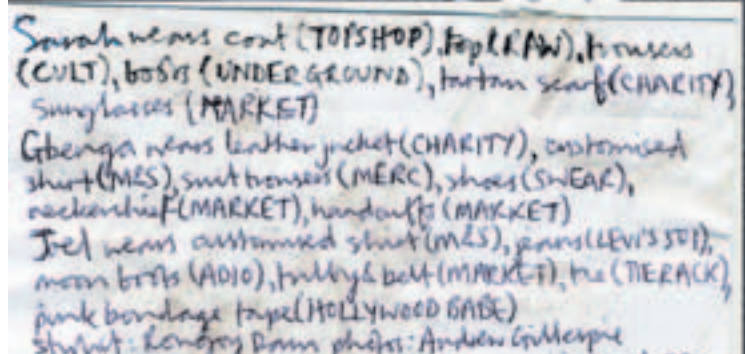 Sarah wears coat (TOPSHOP), top (RAW), trousers
(CULT), boots (UNDERGROUND), tartan scarf (CHARITY),
sunglasses (MARKET)
Gbenga wears leather jacket (CHARITY), customised
shirt (M&S), suit trousers (MERC), shoes (SWEAR),
neckerchief (MARKET), handcuffs (MARKET)
Joel wears customised shirt (M&S), jeans (LEVI'S 501),
moon boots (ADIO), trilby & belt (MARKET), tie (TIERACK),
punk bondage tape (HOLLYWOOD BABE)
Stylist: photos: Andrew Gillespie